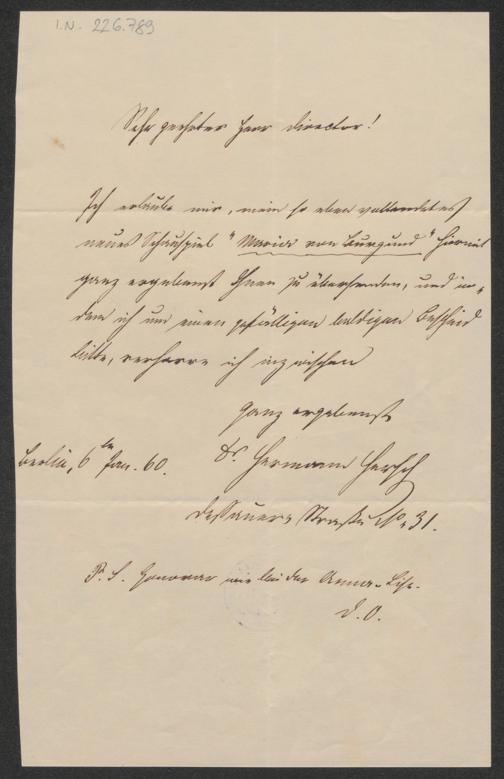 I.N. 226.789
Sehr geehrter Herr Director!
Ich erlaube mir, mein so eben vollendetes
neues Schauspiel "Maria von Burgund" hiermit
ganz ergebenst Ihnen zu übersenden, und in-
dem ich um einen gefälligen baldigen Bescheid
bitte, verharre ich inzwischen
ganz ergebenst
Dr. Hermann Hersch
Berlin, 6ten Jan. 60.
Dessauer Straße No. 31.
P. S. Honorar wie bei der Anna-Lise.
D. O.